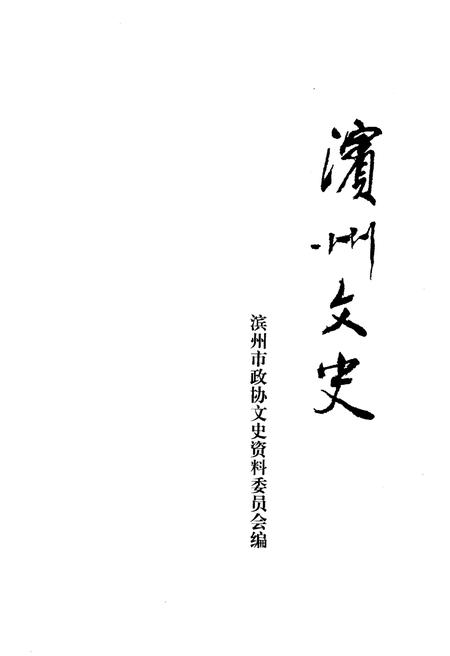 濱州文史
滨州市政协文史资料委员会编